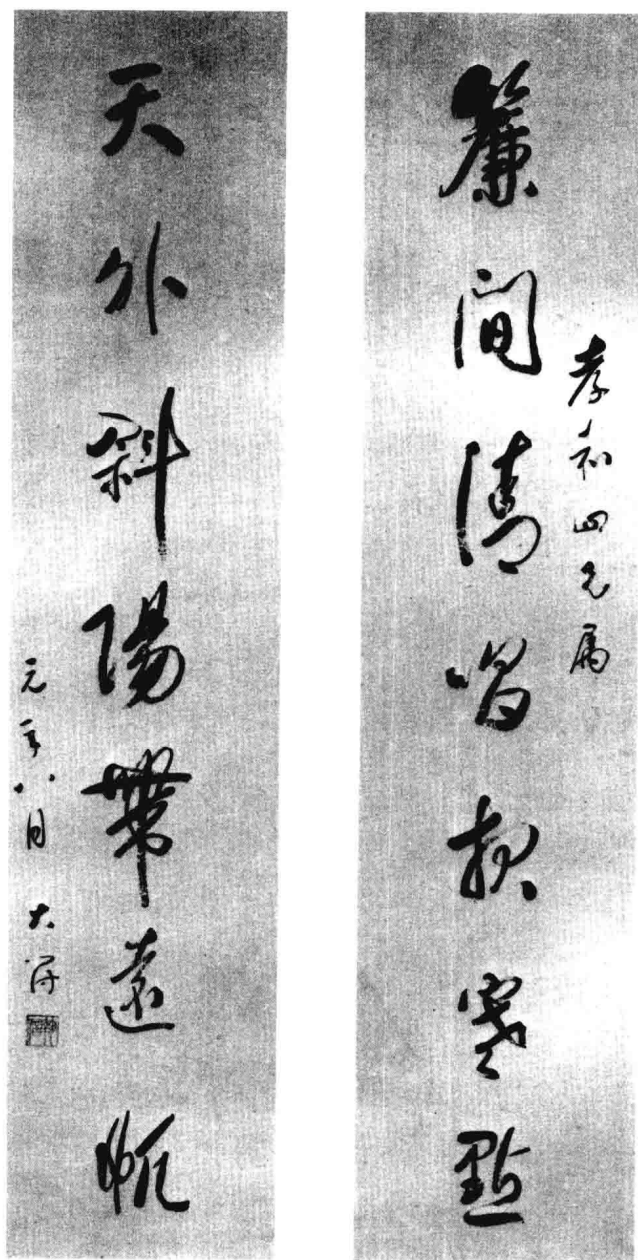 簾間清唱報寒點
孝和四兄屬
天外斜陽帶遠帆
元年八月 大